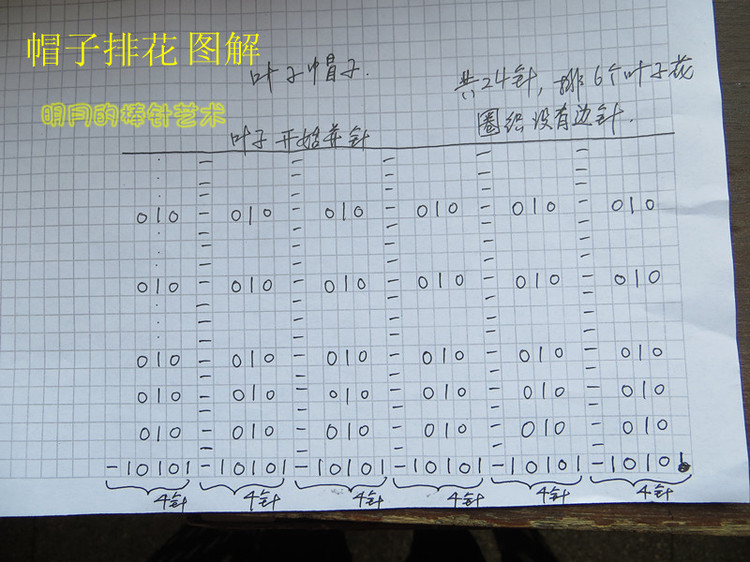 帽子排花 图解
叶子帽子.
共24针, 排6个叶子花
明月的棒针艺术
圈织没有边针.
叶子开始并针
010 - 010 - 010 - 010 - 010 - 010
010 - 010 - 010 - 010 - 010 - 010
010 - 010 - 010 - 010 - 010 - 010
010 - 010 - 010 - 010 - 010 - 010
010 - 010 - 010 - 010 - 010 - 010
-10101 -10101 -10101 -10101 -10101 -10101
4针 4针 4针 4针 4针 4针